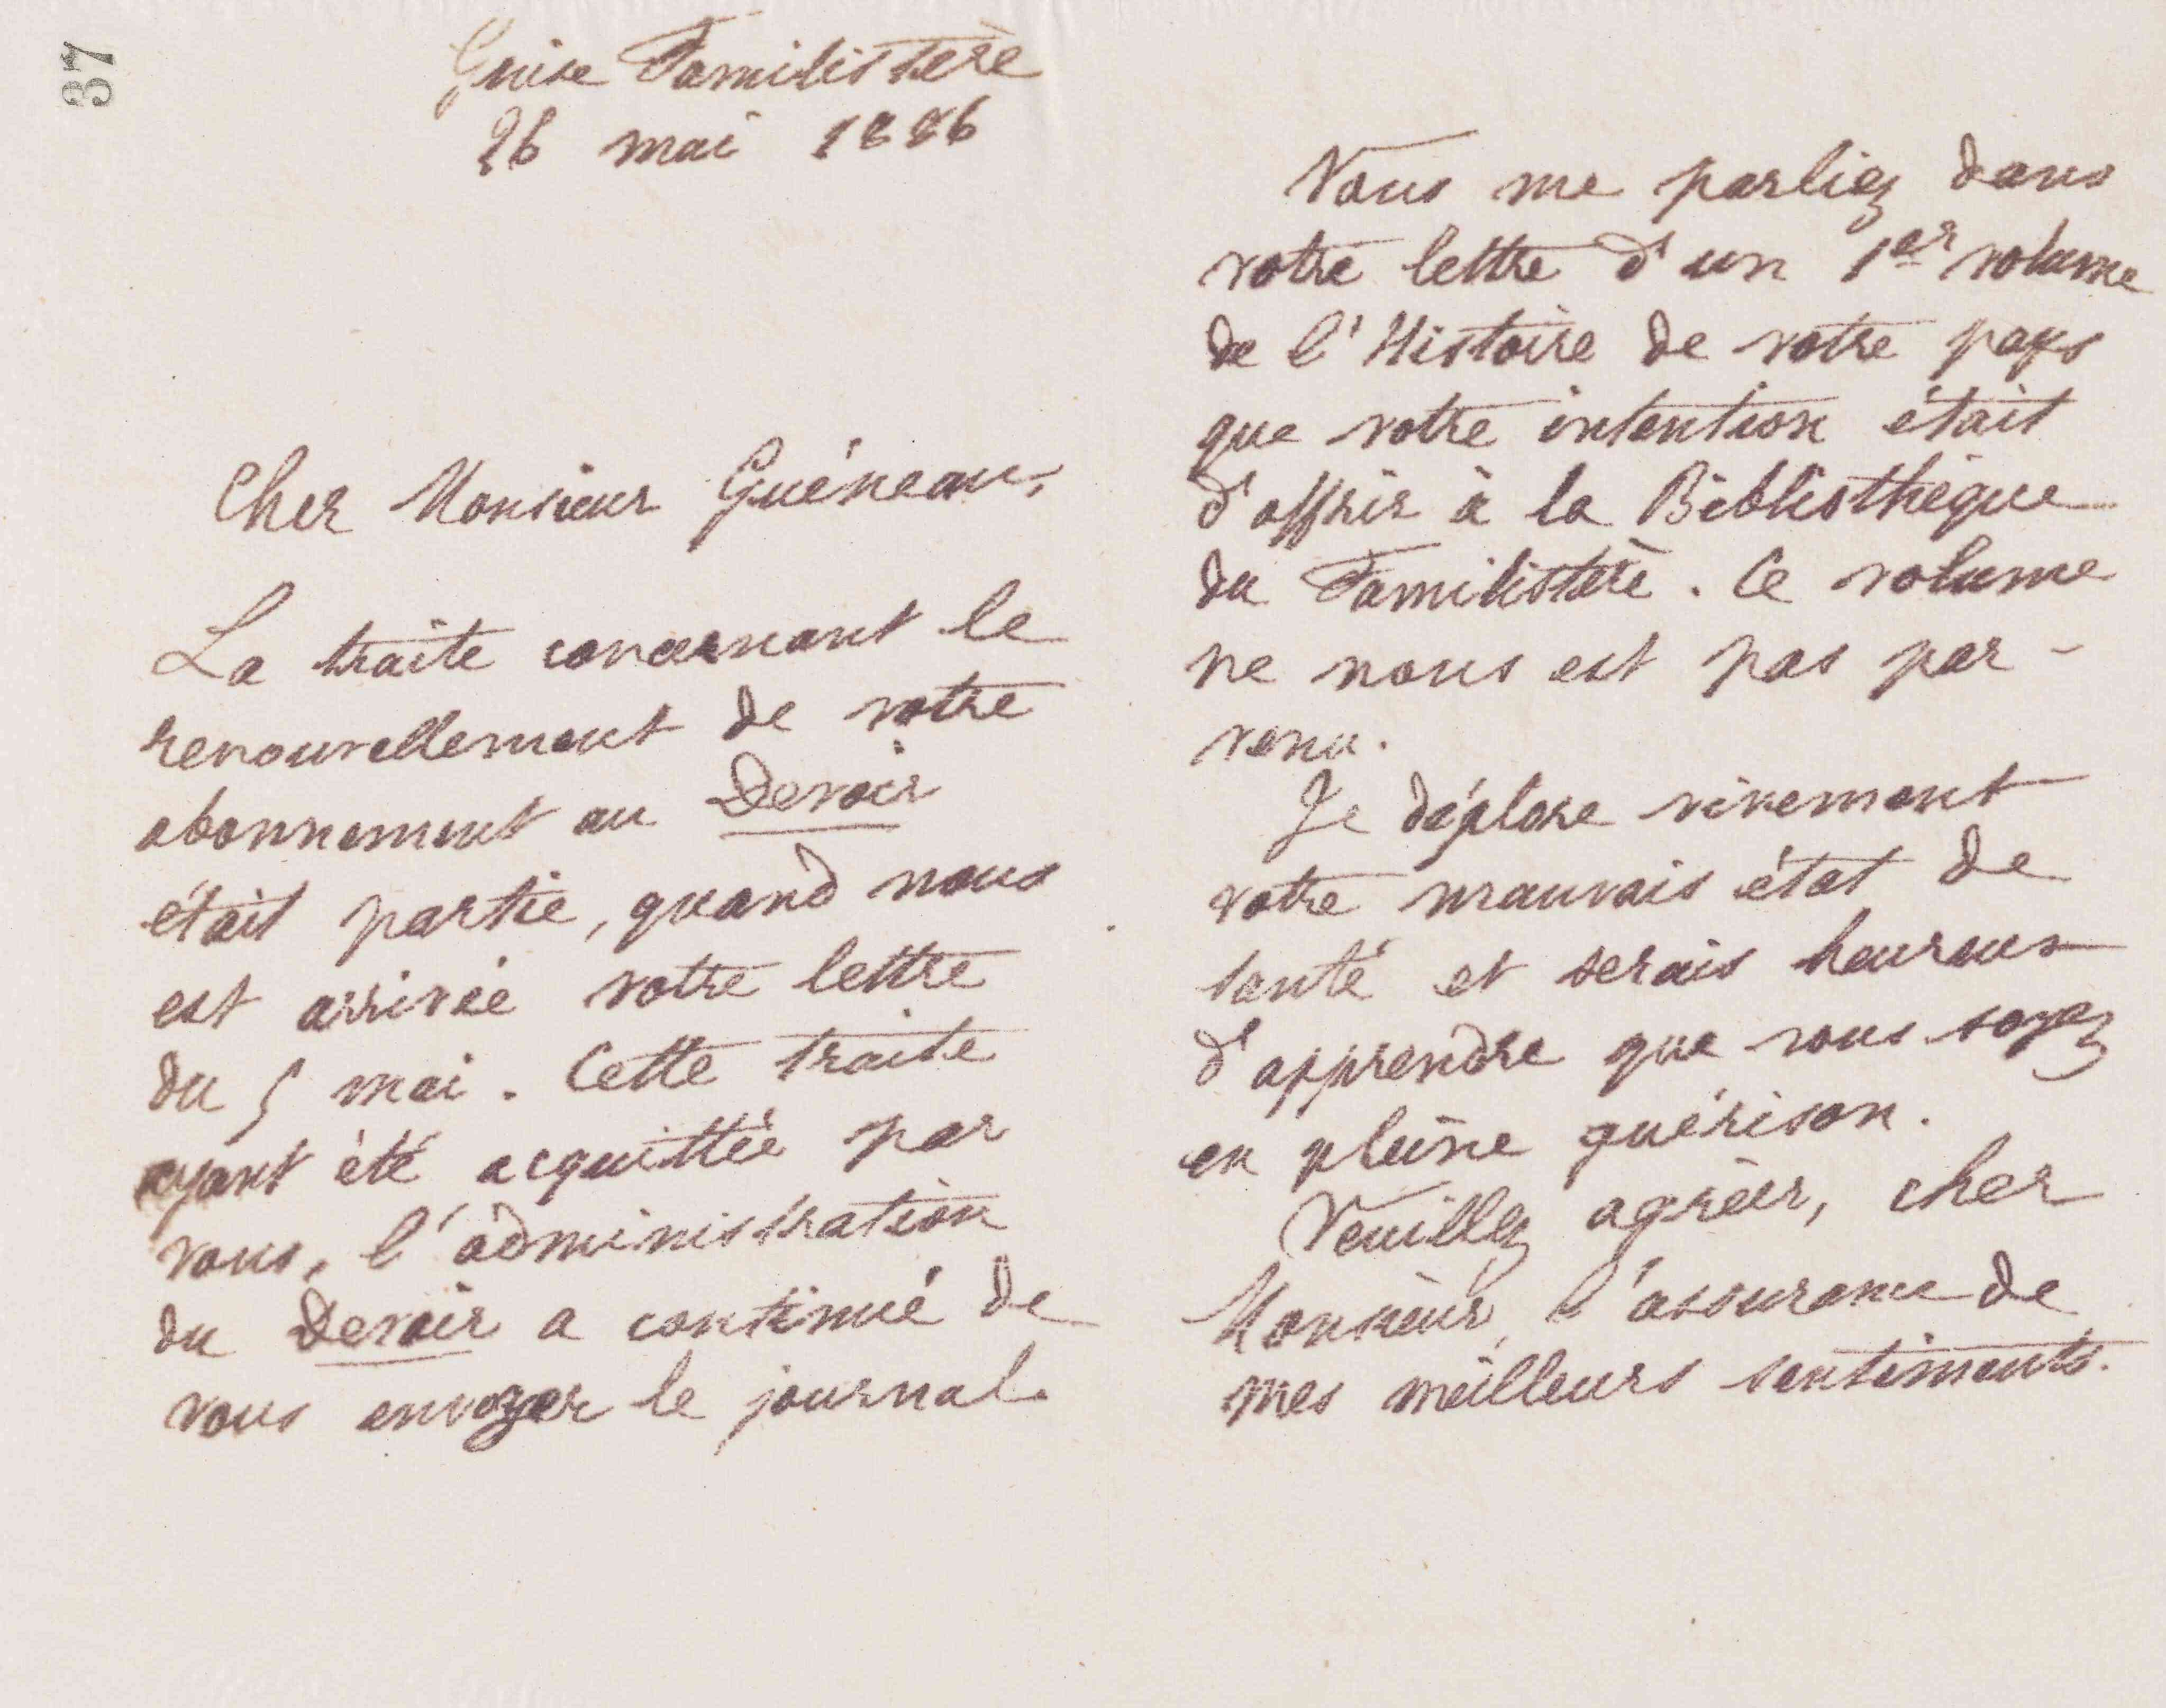 37
Guise Familistère
26 mai 1886
Cher Monsieur Guéneau,
La traite concernant le
renouvellement de votre
abonnement au Devoir
était partie, quand nous
est arrivée votre lettre
du 5 mai. Cette traite
ayant été acquittée par
vous, l'administration
du Devoir a continué de
vous envoyer le journal.
Vous me parliez dans
votre lettre d'un 1er volume
de l'Histoire de votre pays
que votre intention était
d'offrir à la Bibliothèque
du Familistère. Ce volume
ne nous est pas par-
venu.
Je déplore vivement
votre mauvais état de
santé et serais heureux
d'apprendre que vous soyez
en pleine guérison.
Veuillez agréer, cher
Monsieur, l'assurance de
mes meilleurs sentiments.